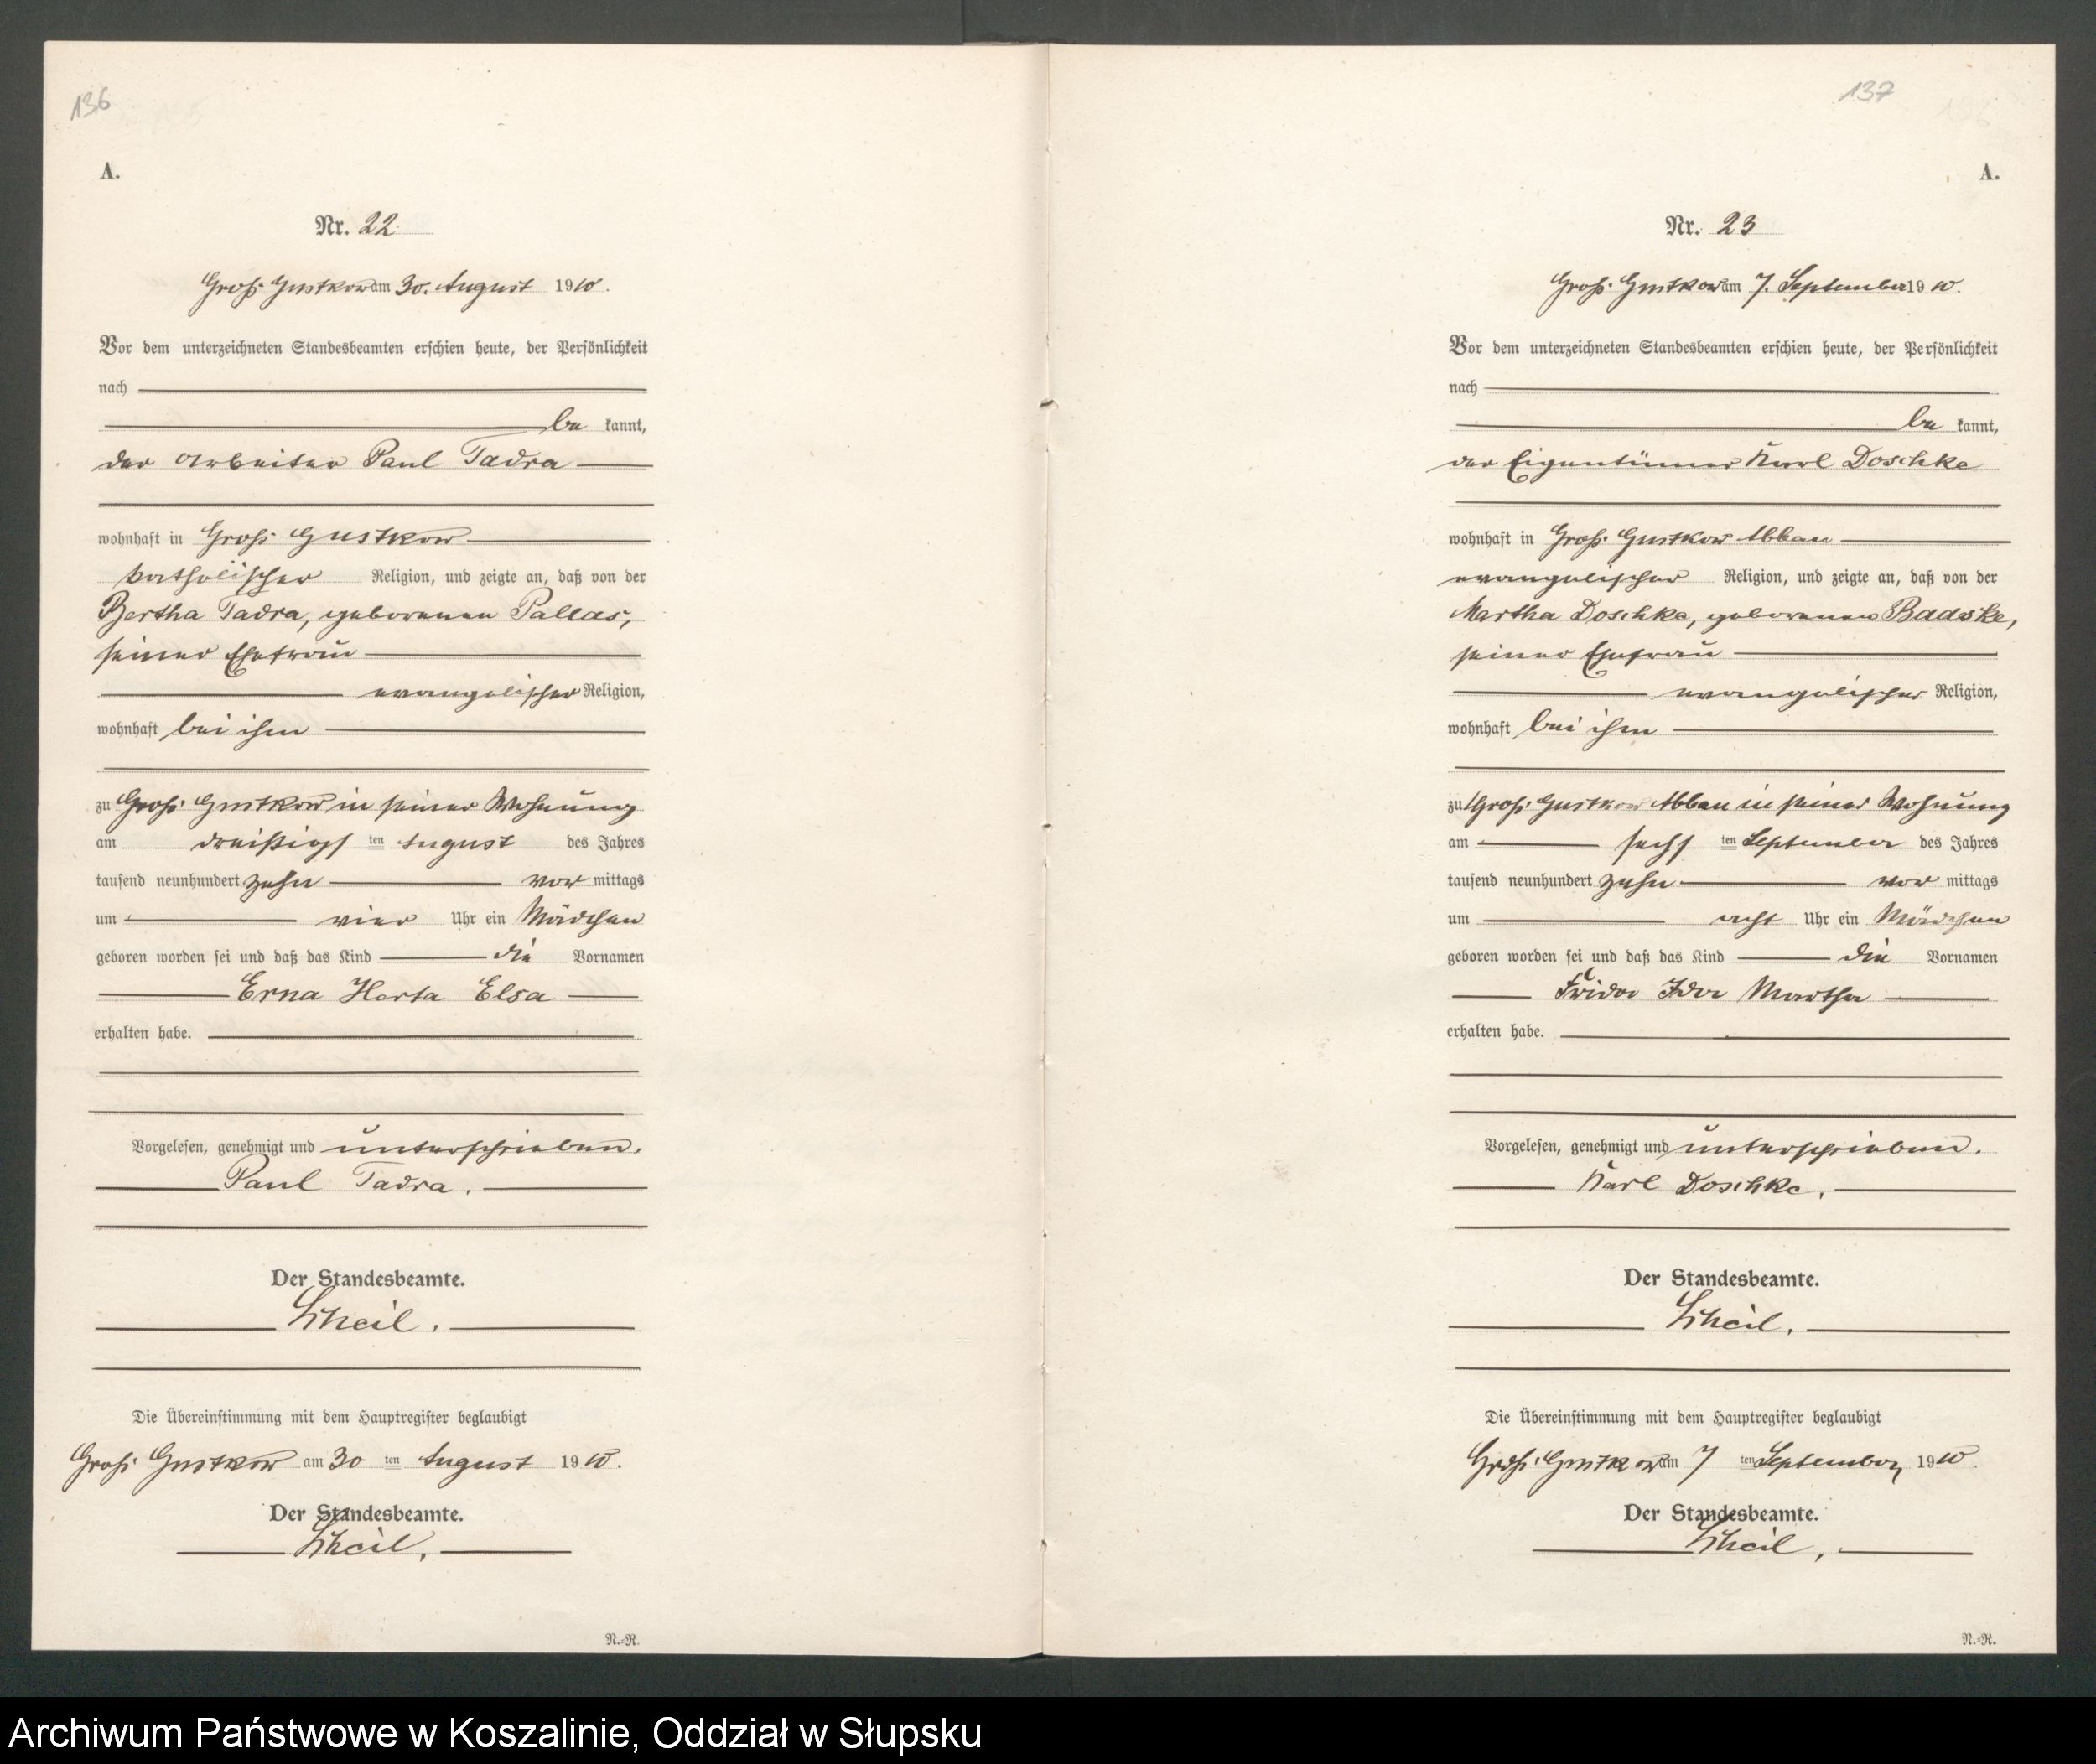 136
A.
Nr. 22
Groß Gustkow am 30. August 1910.
Vor dem unterzeichneten Standesbeamten erschien heute, der Persönlichkeit
nach
be kannt,
der Arbeiter Paul Tadra
wohnhaft in Groß Gustkow
katholischer Religion, und zeigte an, daß von der
Bertha Tadra, geborenen Pallas,
seiner Ehefrau
evangelischer Religion,
wohnhaft bei ihm
zu Groß Gustkow in seiner Wohnung
am dreißigs ten August des Jahres
tausend neunhundert zehn vor mittags
um vier Uhr ein Mädchen
geboren worden sei und daß das Kind die Vornamen
Erna Herta Elsa
erhalten habe.
Vorgelesen, genehmigt und unterschrieben.
Paul Tadra.
Der Standesbeamte.
Scheil.
Die Übereinstimmung mit dem Hauptregister beglaubigt
Groß Gustkow am 30 ten August 1910.
Der Standesbeamte.
Scheil.
N.=R.
137
A.
Nr. 23
Groß Gustkow am 7. September 1910.
Vor dem unterzeichneten Standesbeamten erschien heute, der Persönlichkeit
nach
be kannt,
der Eigentümer Karl Doschke
wohnhaft in Groß Gustkow Abbau
evangelischer Religion, und zeigte an, daß von der
Martha Doschke, geborenen Badske,
seiner Ehefrau
evangelischer Religion,
wohnhaft bei ihm
zu Groß Gustkow Abbau in seiner Wohnung
am sechs ten September des Jahres
tausend neunhundert zehn vor mittags
um acht Uhr ein Mädchen
geboren worden sei und daß das Kind die Vornamen
Frieda Ida Martha
erhalten habe.
Vorgelesen, genehmigt und unterschrieben.
Karl Doschke.
Der Standesbeamte.
Scheil.
Die Übereinstimmung mit dem Hauptregister beglaubigt
Groß Gustkow am 7 ten September 1910.
Der Standesbeamte.
Scheil.
N.=R.
Archiwum Państwowe w Koszalinie, Oddział w Słupsku